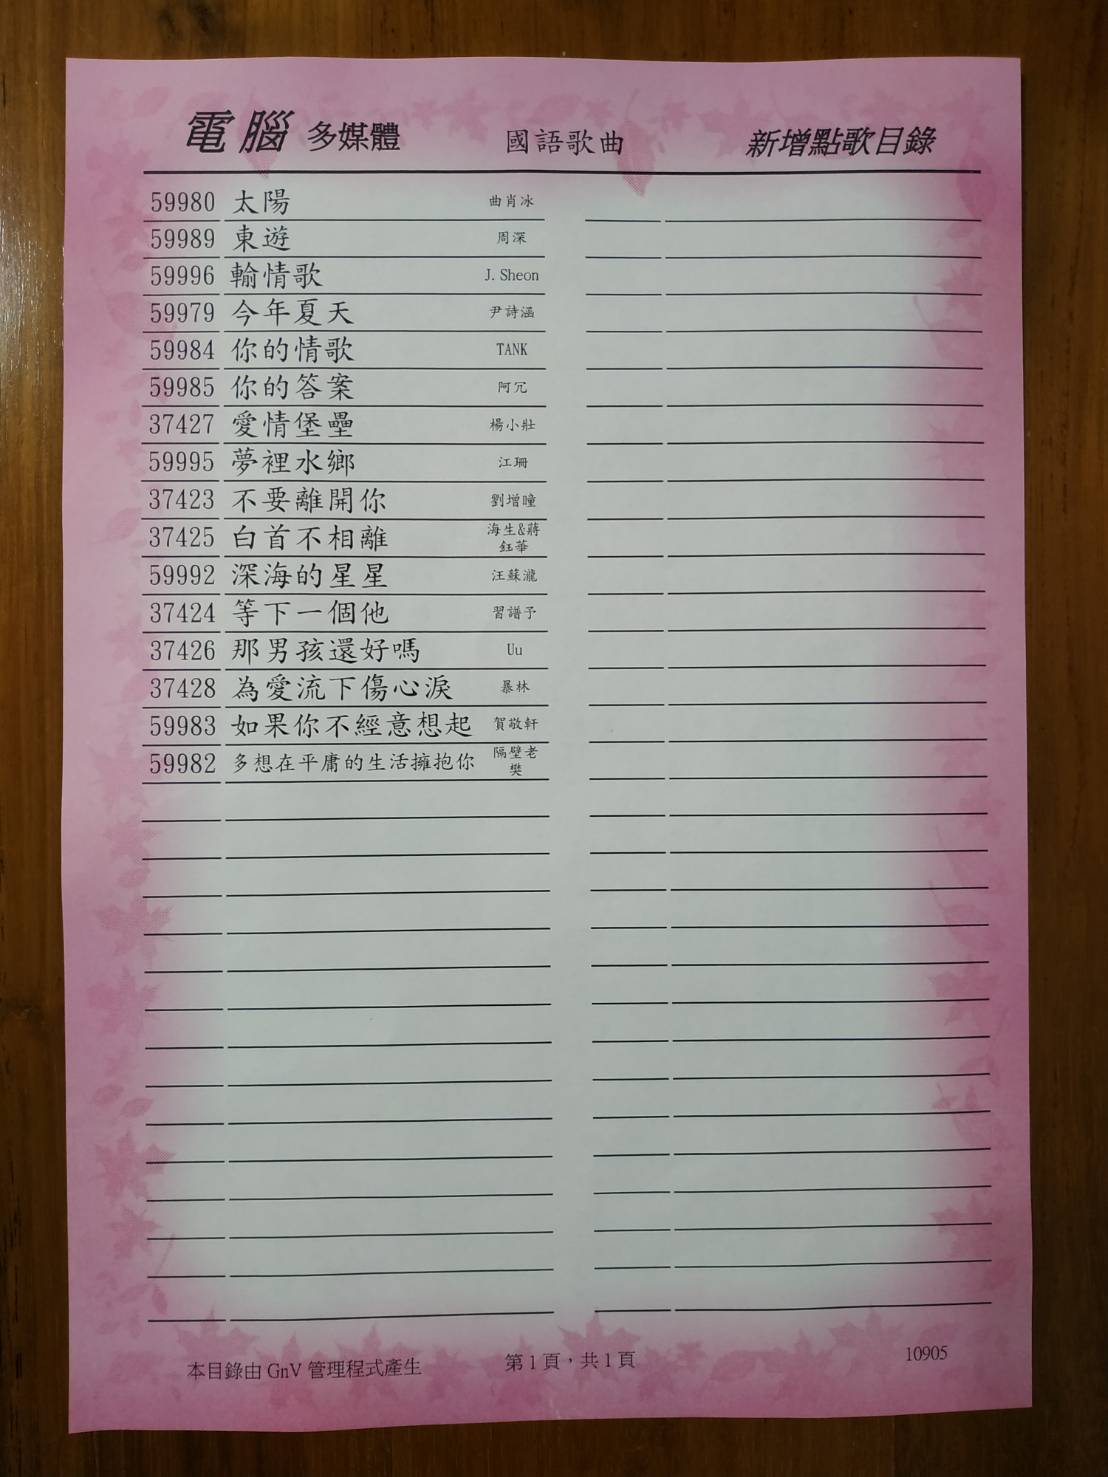 電腦 多媒體 國語歌曲 新增點歌目錄
59980 太陽 曲肖冰
59989 東遊 周深
59996 輸情歌 J. Sheon
59979 今年夏天 尹詩涵
59984 你的情歌 TANK
59985 你的答案 阿冗
37427 愛情堡壘 楊小壯
59995 夢裡水鄉 江珊
37423 不要離開你 劉增瞳
37425 白首不相離 海生&蔣
鈺華
59992 深海的星星 汪蘇瀧
37424 等下一個他 習譜予
37426 那男孩還好嗎 Uu
37428 為愛流下傷心淚 暴林
59983 如果你不經意想起 賀敬軒
59982 多想在平庸的生活擁抱你 隔壁老
樊
本目錄由 GnV 管理程式產生 第1頁，共1頁 10905